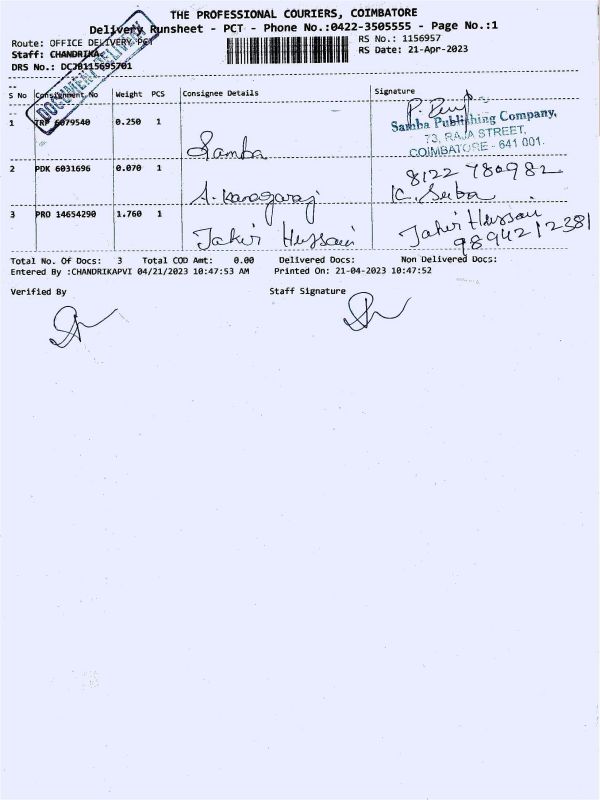 THE PROFESSIONAL COURIERS, COIMBATORE
Delivery Runsheet - PCT - Phone No.:0422-3505555 - Page No.:1
Route: OFFICE DELIVERY-PCT
RS No.: 1156957
Staff: CHANDRIKA-
RS Date: 21-Apr-2023
DRS No.: DCJB115695701
DOCUMENT DELIVERY
S No Consignment No Weight PCS Consignee Details Signature
1 TRP 6079540 0.250 1 Samba
Samba Publishing Company,
73, RAJA STREET,
COIMBATORE - 641 001.
2 PDK 6031696 0.070 1 A. Kanagaraj 8122 780982
3 PRO 14654290 1.760 1 Jakir Hussain Jakir Hussain
9894212381
Total No. Of Docs: 3 Total COD Amt: 0.00 Delivered Docs: Non Delivered Docs:
Entered By :CHANDRIKAPVI 04/21/2023 10:47:53 AM Printed On: 21-04-2023 10:47:52
Verified By Staff Signature